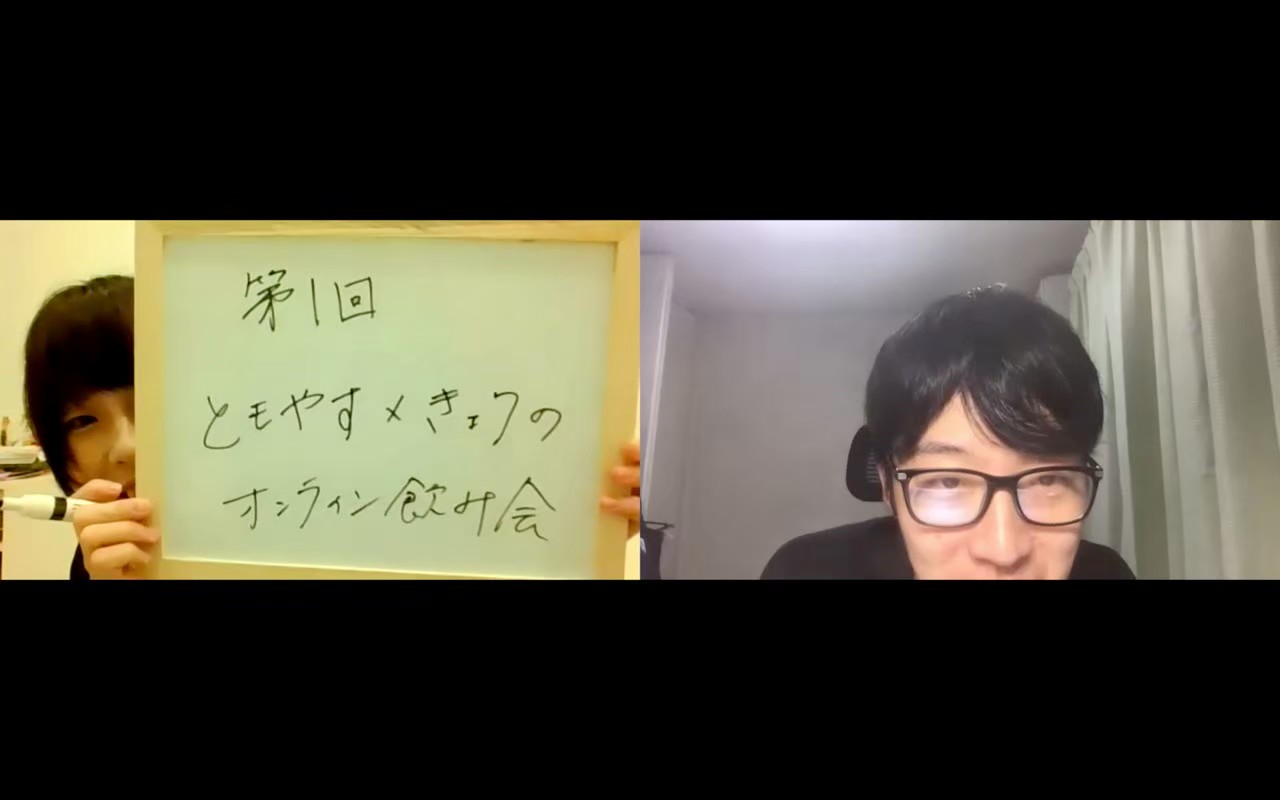 第1回
ともやす×きょうの
オンライン飲み会